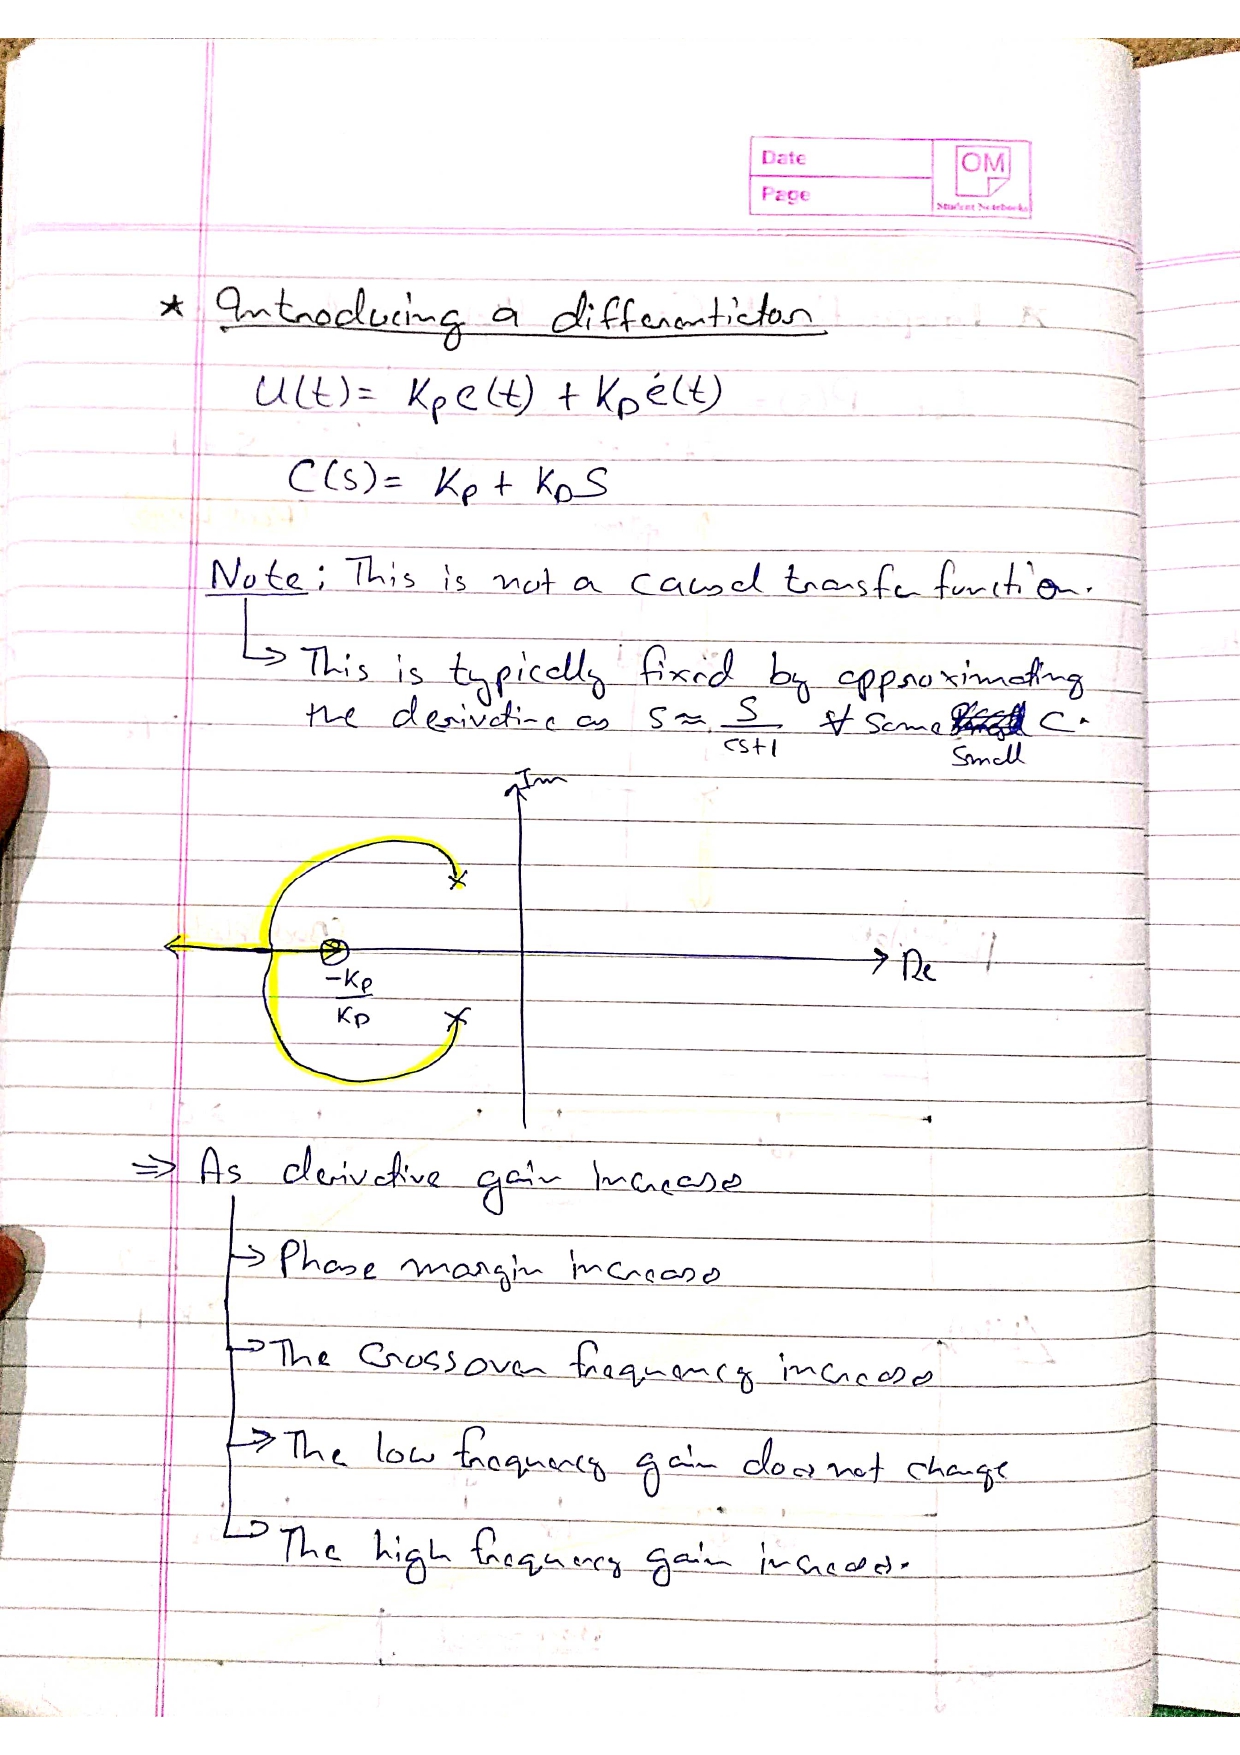 Date
Page
OM
Student Notebooks
* Introducing a differentiator
U(t) = Kp e(t) + KD ė(t)
C(s) = Kp + KD S
Note: This is not a causal transfer function.
↳ This is typically fixed by approximating
the derivative as s ≈ s/(cs+1) ∀ some small c.
Im
Re
-Kp/KD
⇒ As derivative gain increase
→ Phase margin increase
→ The crossover frequency increase
→ The low frequency gain does not change
→ The high frequency gain increases.